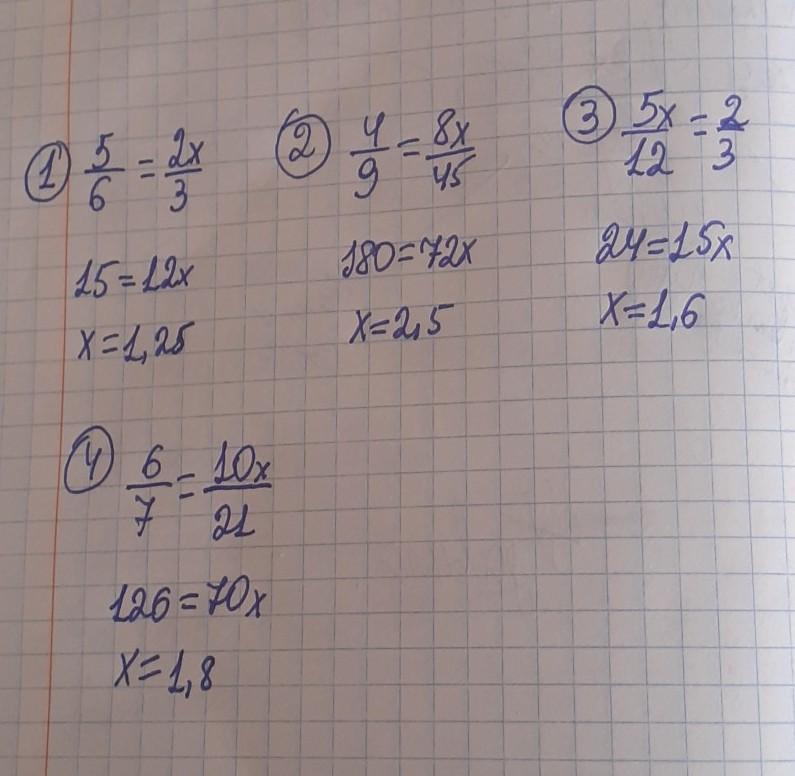 ① 5/6 = 2x/3
15=12x
x=1,25
② 4/9 = 8x/45
180=72x
x=2,5
③ 5x/12 = 2/3
24=15x
x=1,6
④ 6/7 = 10x/21
126=70x
x=1,8